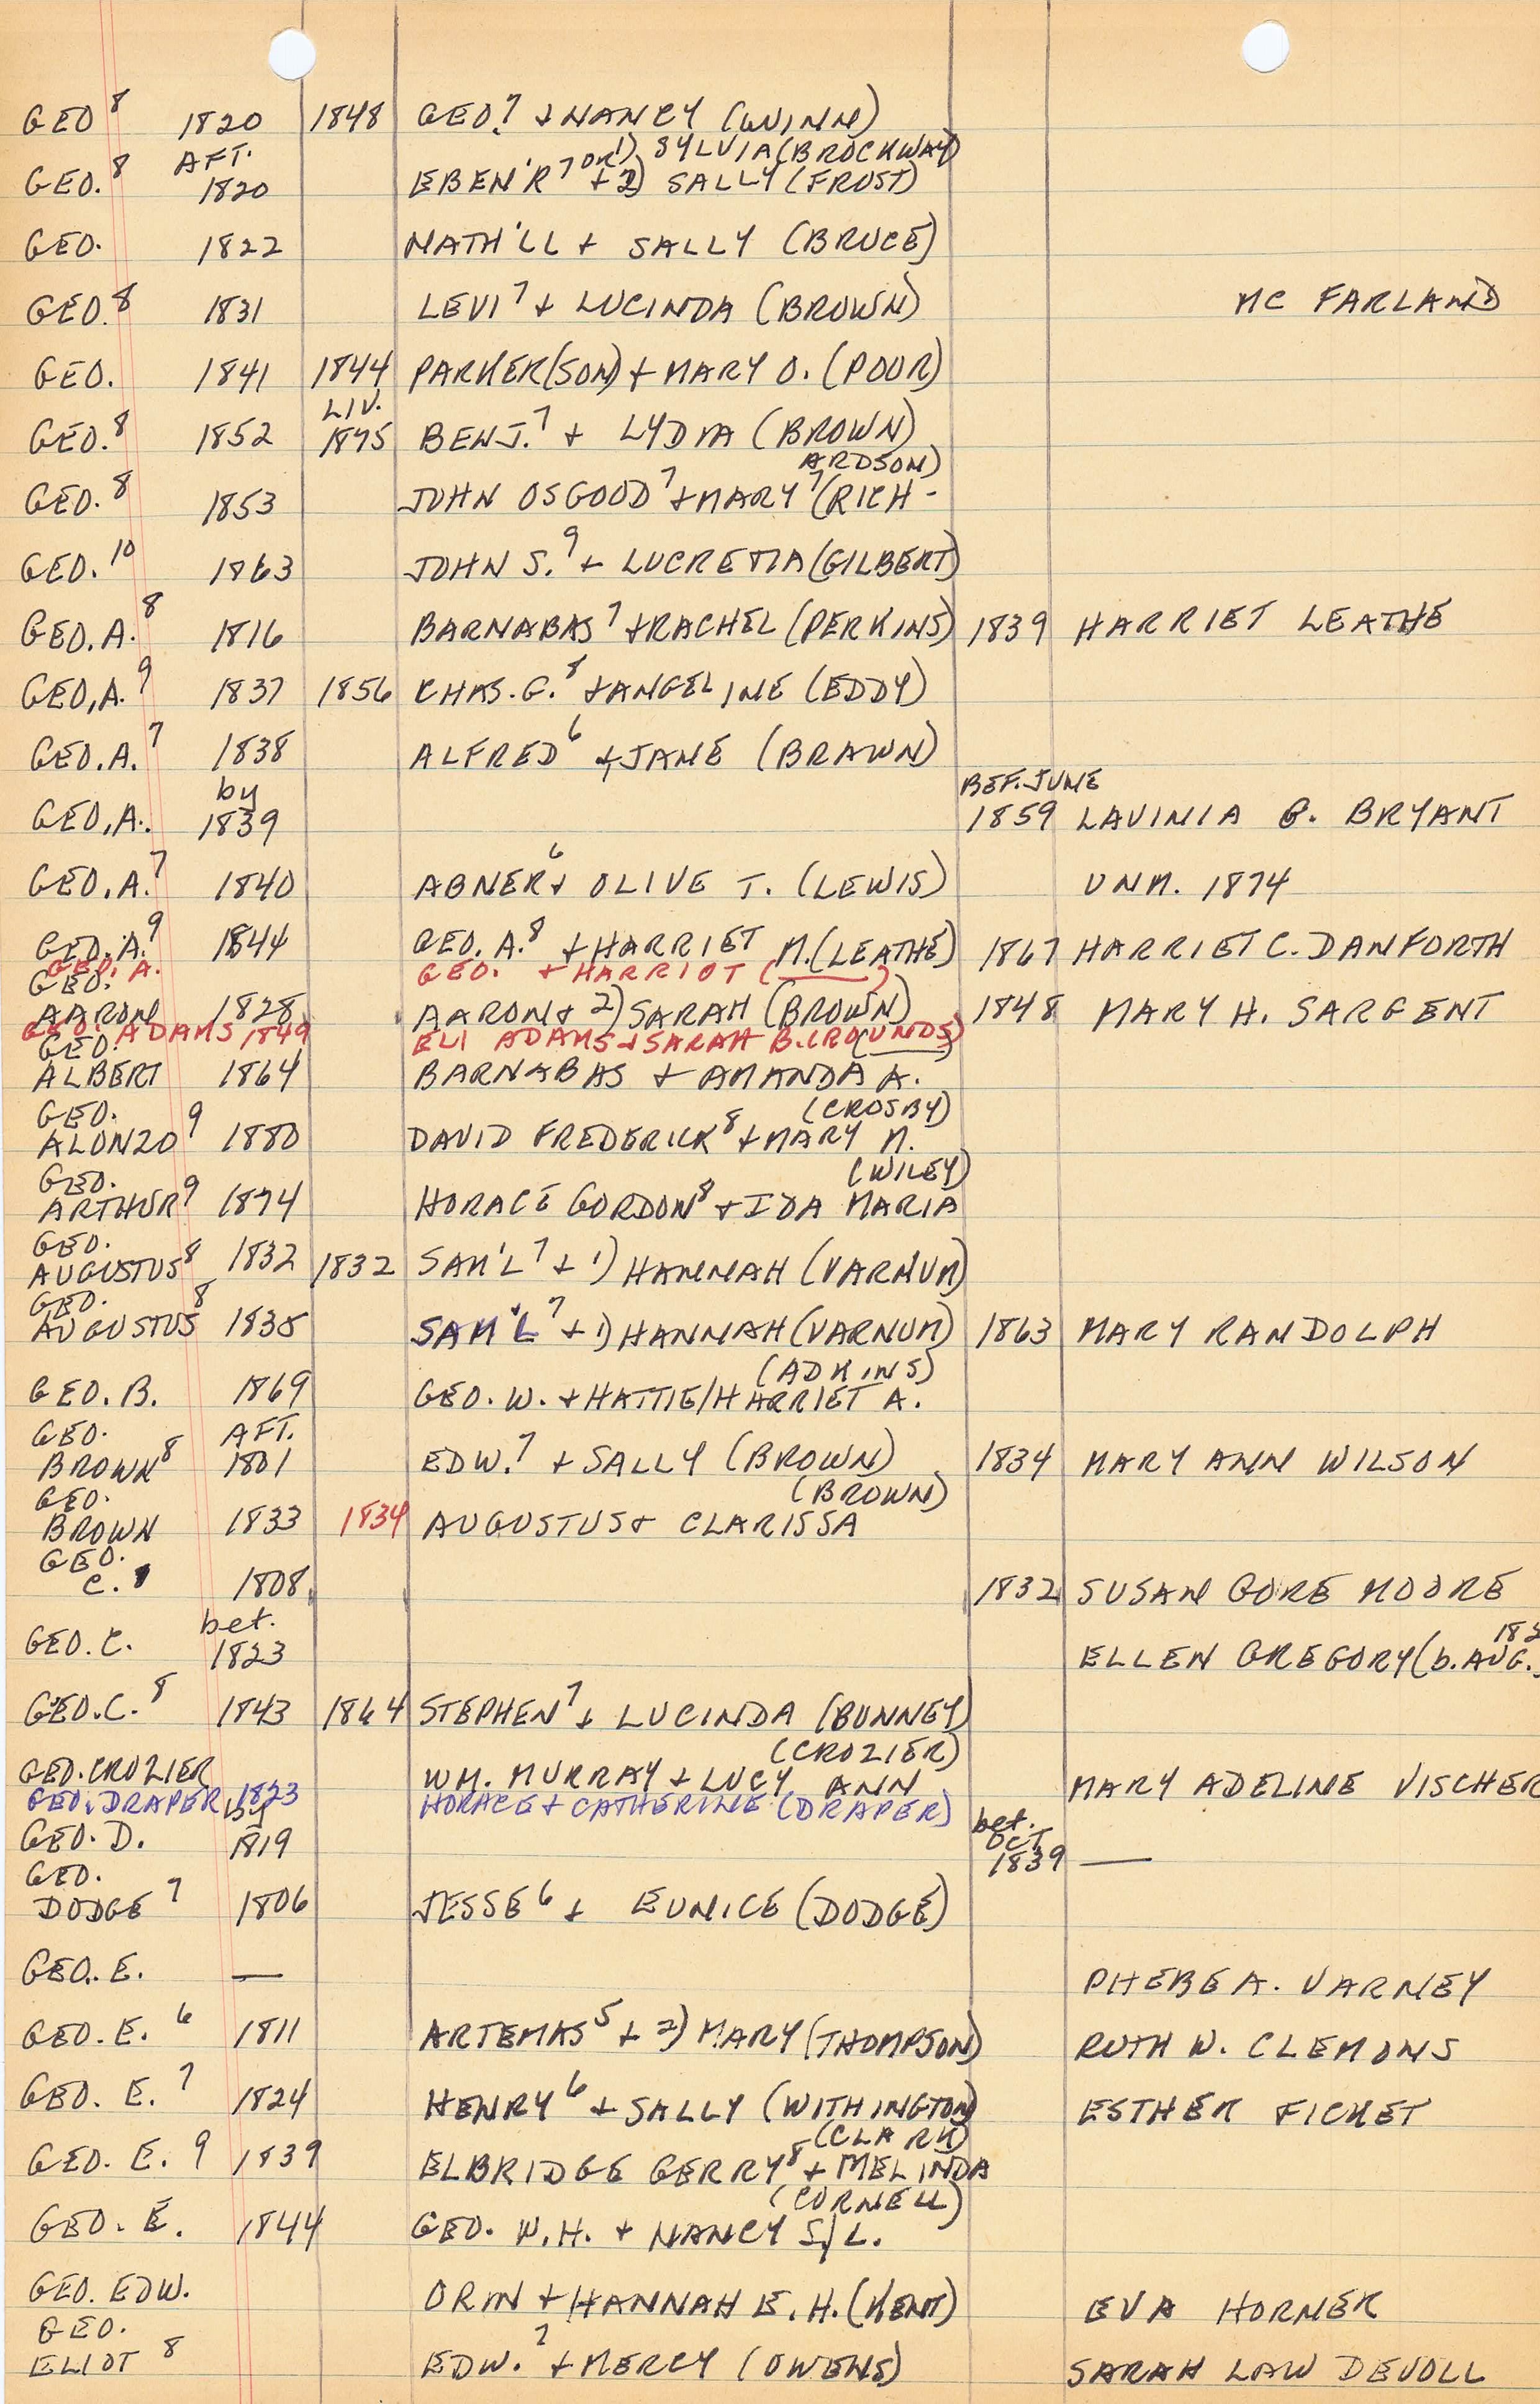 GEO⁸ 1820 1848 GEO.⁷ + NANCY (GUINN)
AFT. OR 1) SYLVIA (BROCKWAY)
GEO.⁸ 1820 EBEN'R⁷ + 2) SALLY (FROST)
GEO. 1822 NATH'LL + SALLY (BRUCE)
GEO.⁸ 1831 LEVI⁷ + LUCINDA (BROWN) MC FARLAND
GEO. 1841 1844 PARKER(SON) + MARY O. (POOR)
LIV.
GEO.⁸ 1852 1875 BENJ.⁷ + LYDIA (BROWN)
ARDSON)
GEO.⁸ 1853 JOHN OSGOOD⁷ + MARY⁷ (RICH-
GEO.¹⁰ 1863 JOHN S.⁹ + LUCRETIA (GILBERT)
GEO. A.⁸ 1816 BARNABAS⁷ + RACHEL (PERKINS) 1839 HARRIET LEATHE
GEO, A.⁹ 1837 1856 CHAS. G.⁸ + ANGELINE (EDDY)
GEO. A.⁷ 1838 ALFRED⁶ + JANE (BRAWN)
by BEF. JUNE
GEO, A. 1839 1859 LAVINIA G. BRYANT
GEO. A.⁷ 1840 ABNER⁶ + OLIVE T. (LEWIS) UNM. 1874
GEO. A.⁹ 1844 GEO. A.⁸ + HARRIET M. (LEATHE) 1867 HARRIET C. DANFORTH
GEO. A. GEO. + HARRIOT (____)
GEO.
AARON 1828 AARON + 2) SARAH (BROWN) 1848 MARY H. SARGENT
GEO. ADAMS 1849 ELI ADAMS + SARAH B. (ROUNDS)
GEO. (____)
ALBERT 1864 BARNABAS + AMANDA A.
GEO. (CROSBY)
ALONZO⁹ 1880 DAVID FREDERICK⁸ + MARY M.
GEO. (WILEY)
ARTHUR⁹ 1874 HORACE GORDON⁸ + IDA MARIA
GEO.
AUGUSTUS⁸ 1832 1832 SAM'L⁷ + 1) HANNAH (VARNUM)
GEO.
AUGUSTUS⁸ 1835 SAM'L⁷ + 1) HANNAH (VARNUM) 1863 MARY RANDOLPH
(ADKINS)
GEO. B. 1869 GEO. W. + HATTIE/HARRIET A.
GEO. AFT.
BROWN⁸ 1801 EDW.⁷ + SALLY (BROWN) 1834 MARY ANN WILSON
GEO. (BROWN)
BROWN 1833 1834 AUGUSTUS + CLARISSA
GEO.
C. 1808 1832 SUSAN GORE MOORE
bet. 182
GEO. C. 1823 ELLEN GREGORY (b. AUG.
GEO. C.⁸ 1843 1864 STEPHEN⁷ + LUCINDA (BUNNEY)
(CROZIER)
GEO. CROZIER WM. MURRAY + LUCY ANN MARY ADELINE VISCHER
GEO. DRAPER 1823 HORACE + CATHERINE (DRAPER)
by bet. OCT.
GEO. D. 1819 1839 —
GEO.
DODGE⁷ 1806 JESSE⁶ + EUNICE (DODGE)
GEO. E. — PHEBE A. VARNEY
GEO. E.⁶ 1811 ARTEMAS⁵ + 2) MARY (THOMPSON) RUTH W. CLEMONS
GEO. E.⁷ 1824 HENRY⁶ + SALLY (WITHINGTON) ESTHER FICKET
(CLARK)
GEO. E.⁹ 1839 ELBRIDGE GERRY⁸ + MELINDA
(CORNELL)
GEO. E. 1844 GEO. W. H. + NANCY S/L.
GEO. EDW. ORIN + HANNAH E. H. (KENT) EVA HORNER
GEO.
ELIOT⁸ EDW.⁷ + MERCY (OWENS) SARAH LAW DEVOLL